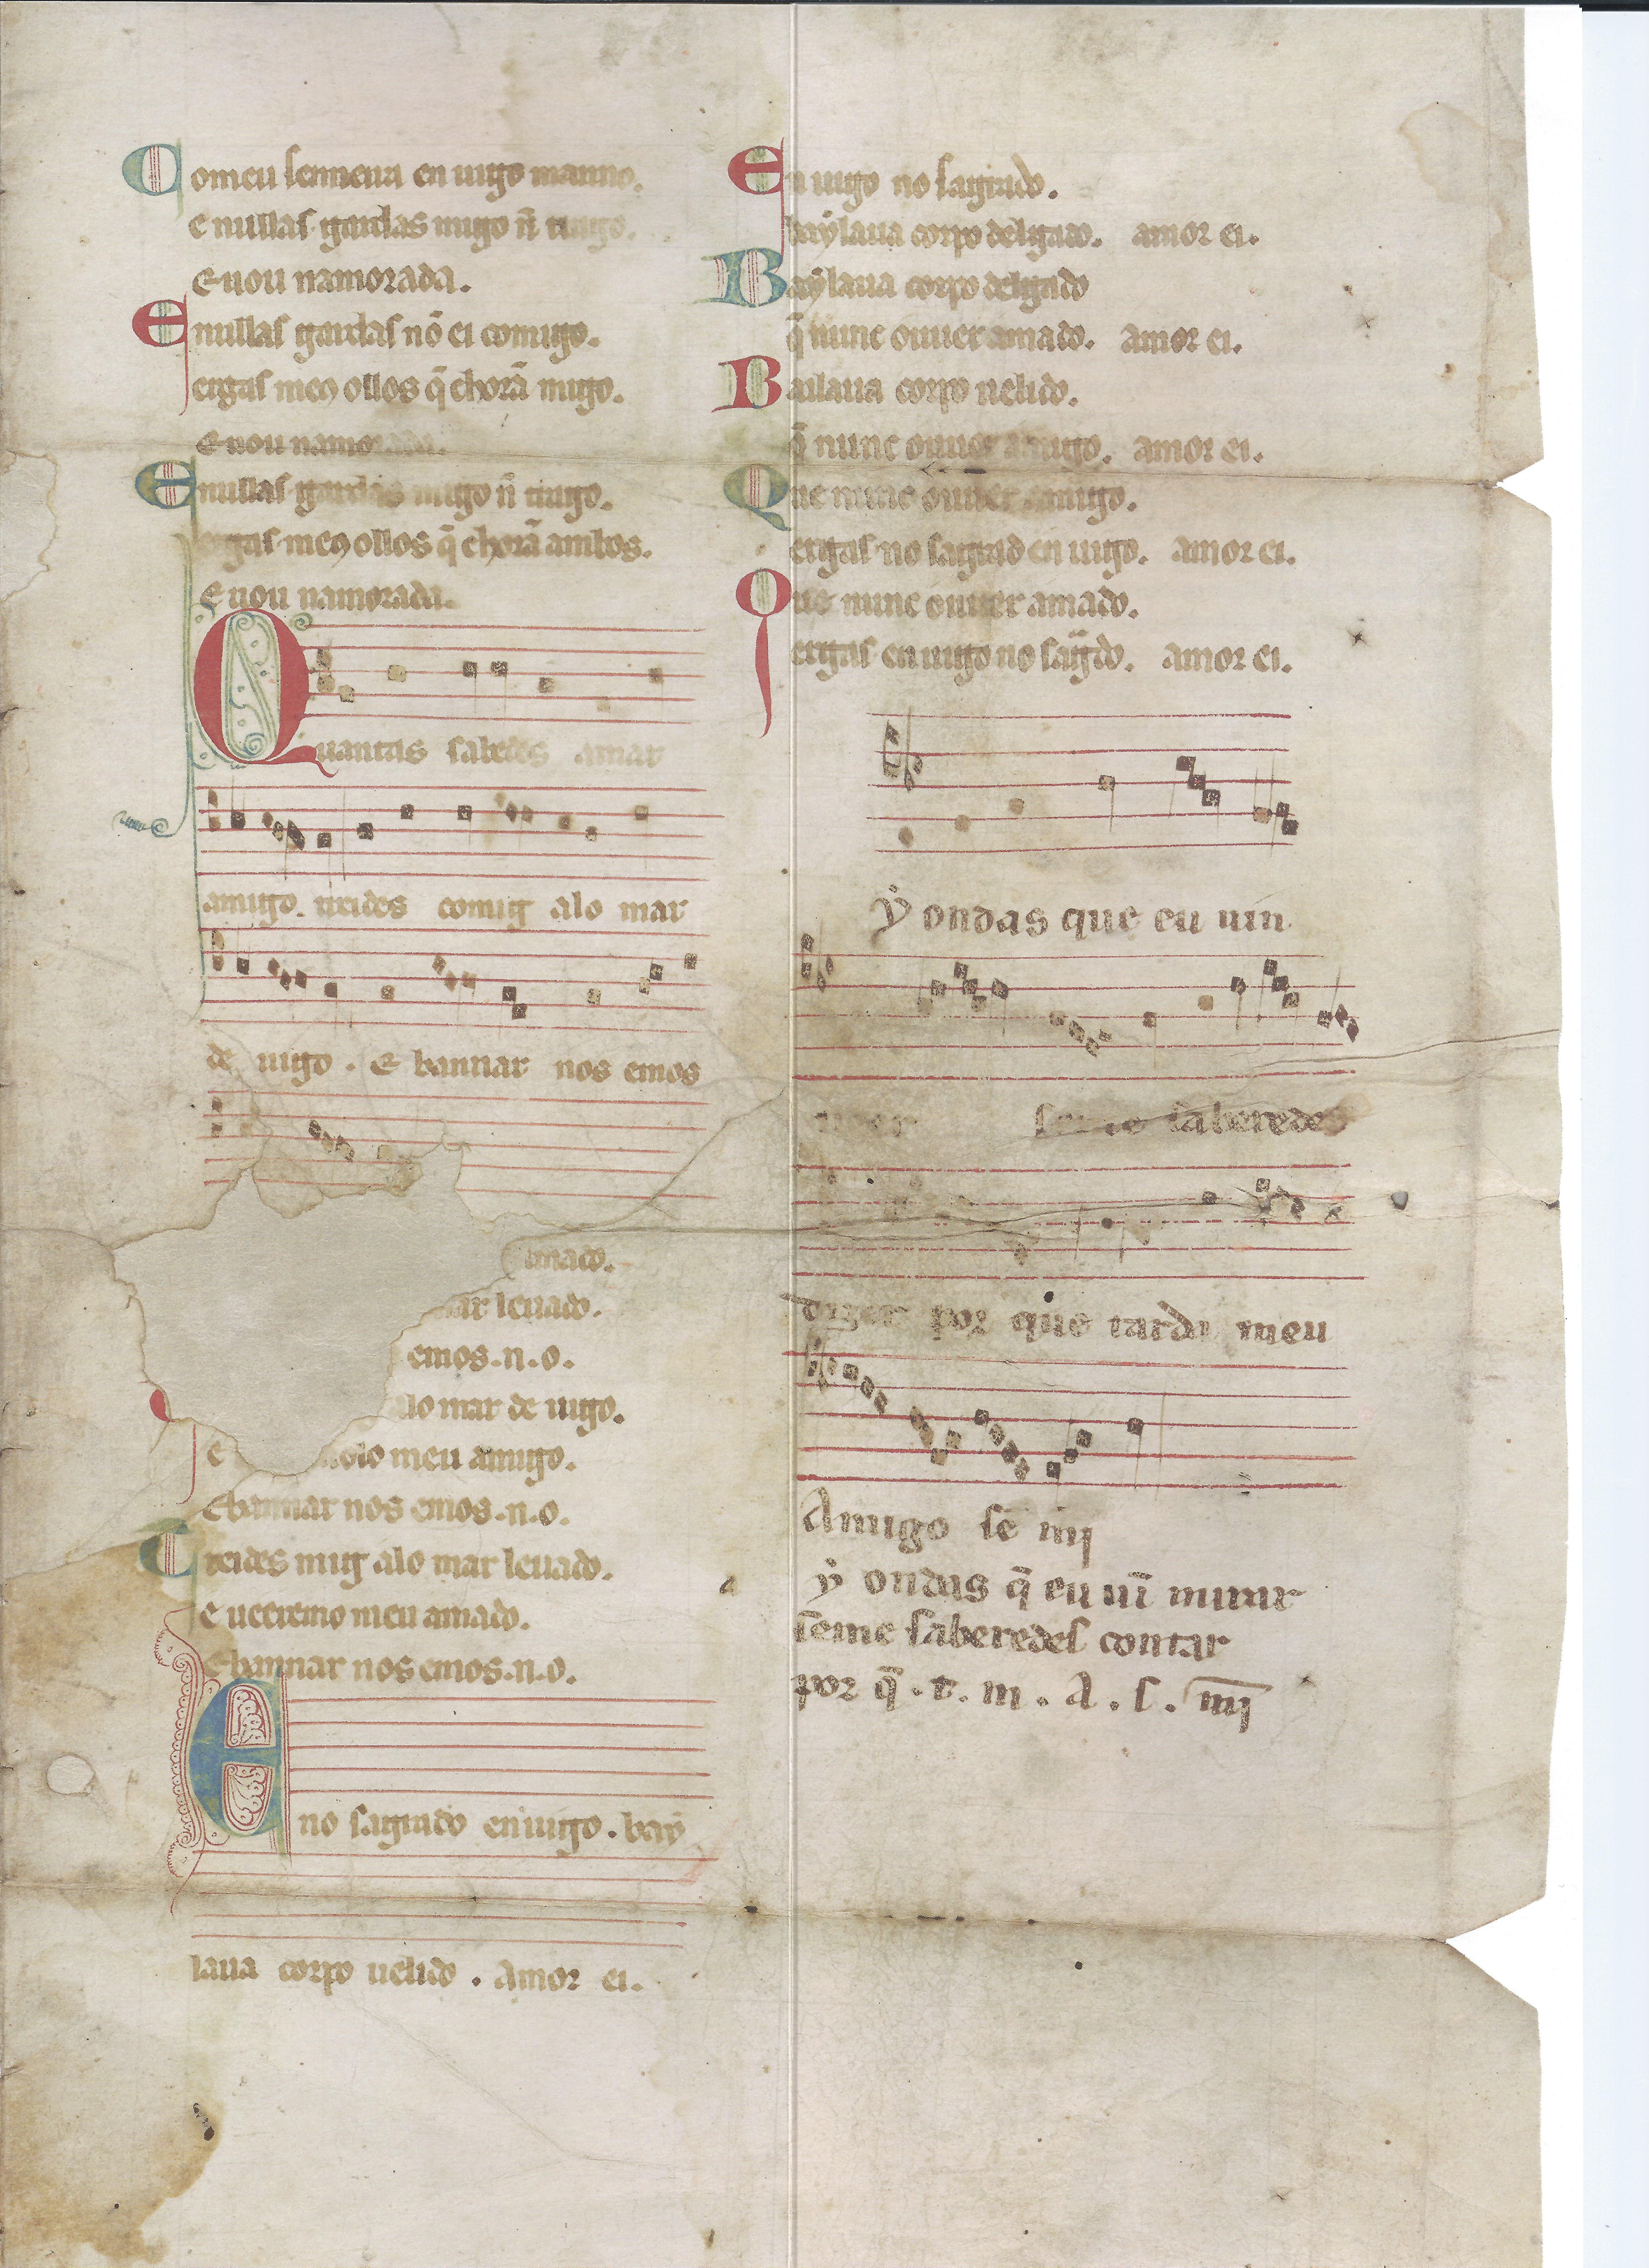 Comeu senneira en uigo manno.
e nullas gardas migo nō trago.
E uou namorada.
E nullas gardas nō ei comigo.
ergas meꝯ ollos q̄ chorā migo.
E uou namorada.
E nullas gardas migo nō trago.
ergas meꝯ ollos q̄ chorā ambos.
E uou namorada.
Quantas sabedes amar
amigo. treides comig alo mar
de uigo. E bannar nos emos
amado.
mar leuado.
emos.n.o.
alo mar de uigo.
e meu amigo.
E bannar nos emos.n.o.
Treides mig alo mar leuado.
e ueeremo meu amado.
E bannar nos emos.n.o.
E no sagrado en uigo. baẏ
laua corpo uelido. Amor ei.
En uigo no sagrado.
baẏlaua corpo delgado. amor ei.
Baẏlaua corpo delgado
q̄ nunc ouuer amado. amor ei.
Bailaua corpo uelido.
q̄ nunc ouuer amigo. amor ei.
Que nunc ouuer amigo.
ergas no sagrad en uigo. amor ei.
Que nunc ouuer amado.
ergas en uigo no sag̃do. amor ei.
ẏ ondas que eu uin
ueer seme saberedes
dizer por que tarda meu
Amigo sē mį
ẏ ondas q̄ eu uī mirar
seme saberedes contar
por q̄ . t. m . A . s . mį